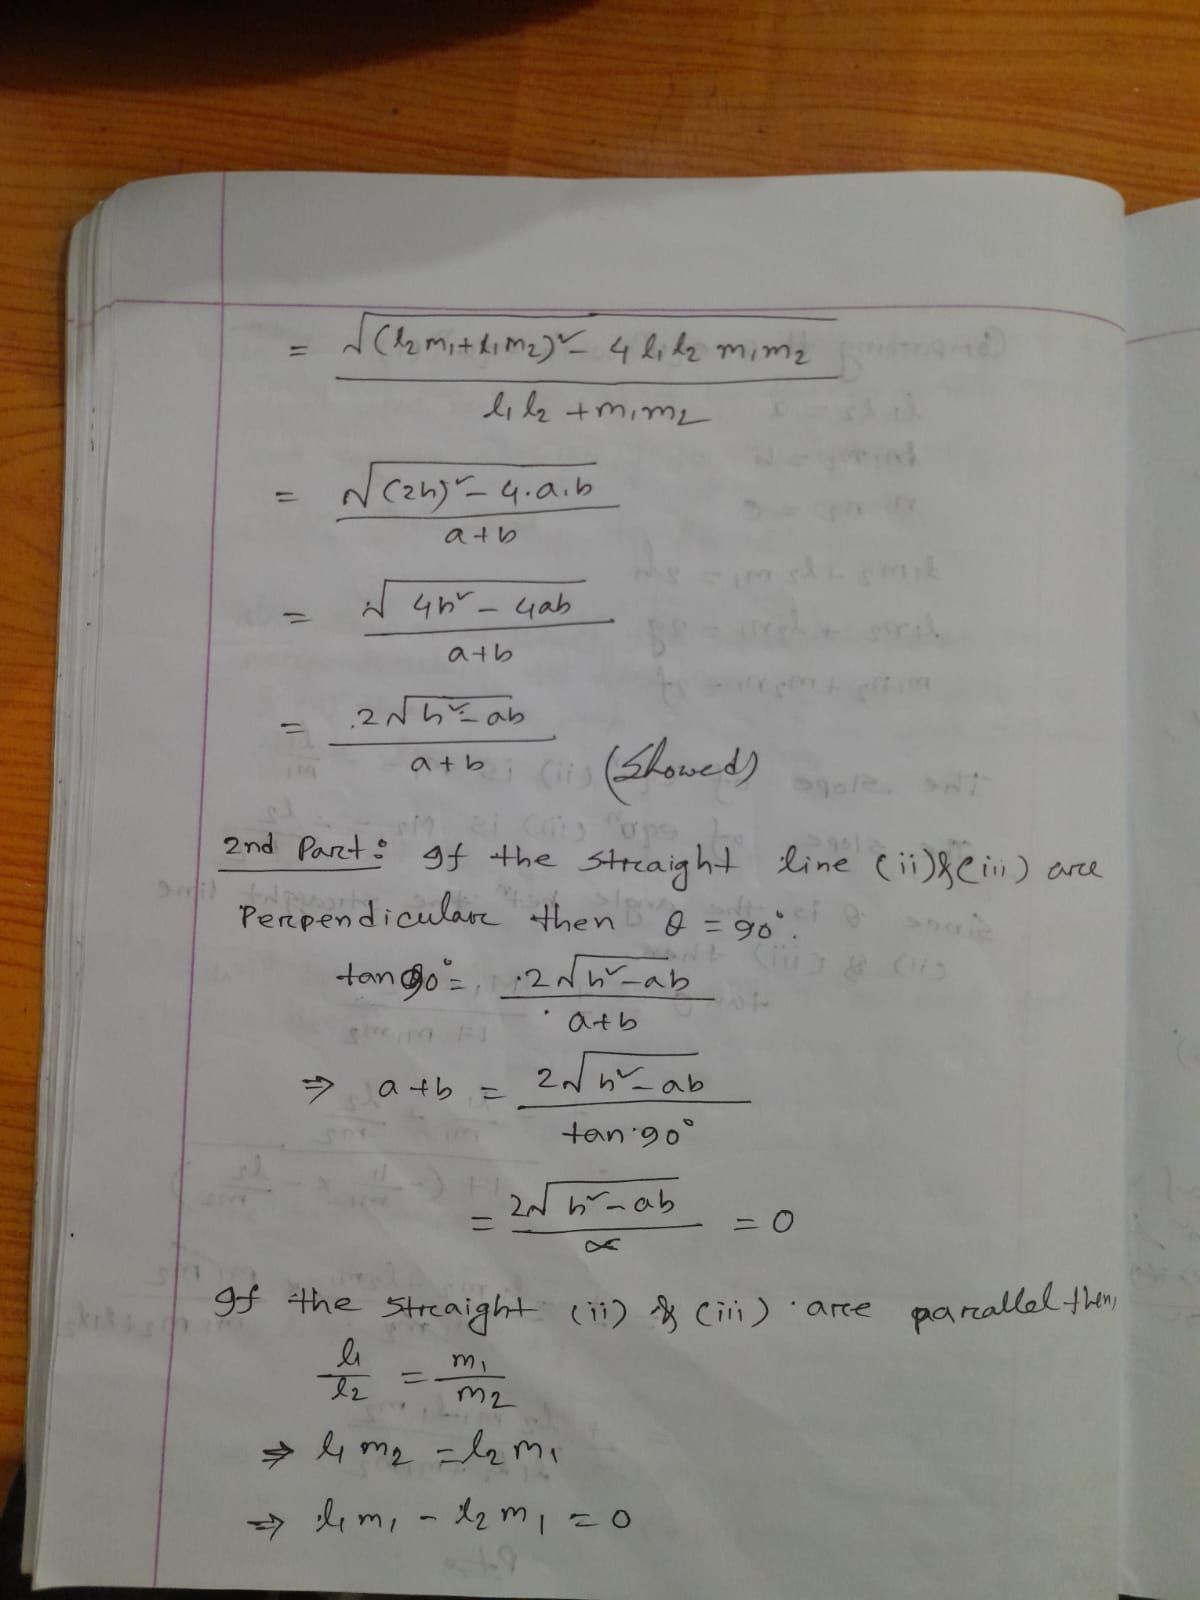 = √((l₂m₁+l₁m₂)² - 4 l₁l₂ m₁m₂) / (l₁l₂ + m₁m₂)
= √((2h)² - 4.a.b) / (a+b)
= √(4h² - 4ab) / (a+b)
= 2√(h² - ab) / (a+b) (Showed)
2nd Part: If the straight line (ii) & (iii) are
Perpendicular then θ = 90°.
tan 90° = 2√(h² - ab) / (a+b)
⇒ a+b = 2√(h² - ab) / tan 90°
= 2√(h² - ab) / ∝ = 0
If the straight (ii) & (iii) are parallel then,
l₁/l₂ = m₁/m₂
⇒ l₁ m₂ = l₂ m₁
⇒ l₁ m₁ - l₂ m₁ = 0